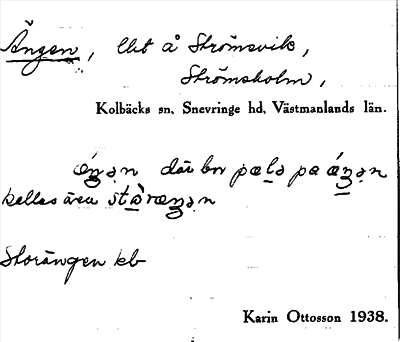 Ängen, lht å Strömsvik,
Strömsholm,
Kolbäcks sn, Snevringe hd, Västmanlands län.
där bor
kallas även
Storängen kb
Karin Ottosson 1938.